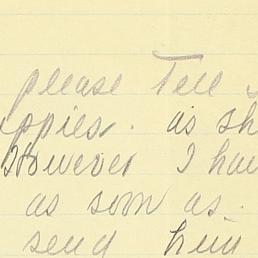 please Tell
uppies. as sh
However I hav
as soon as.
send him